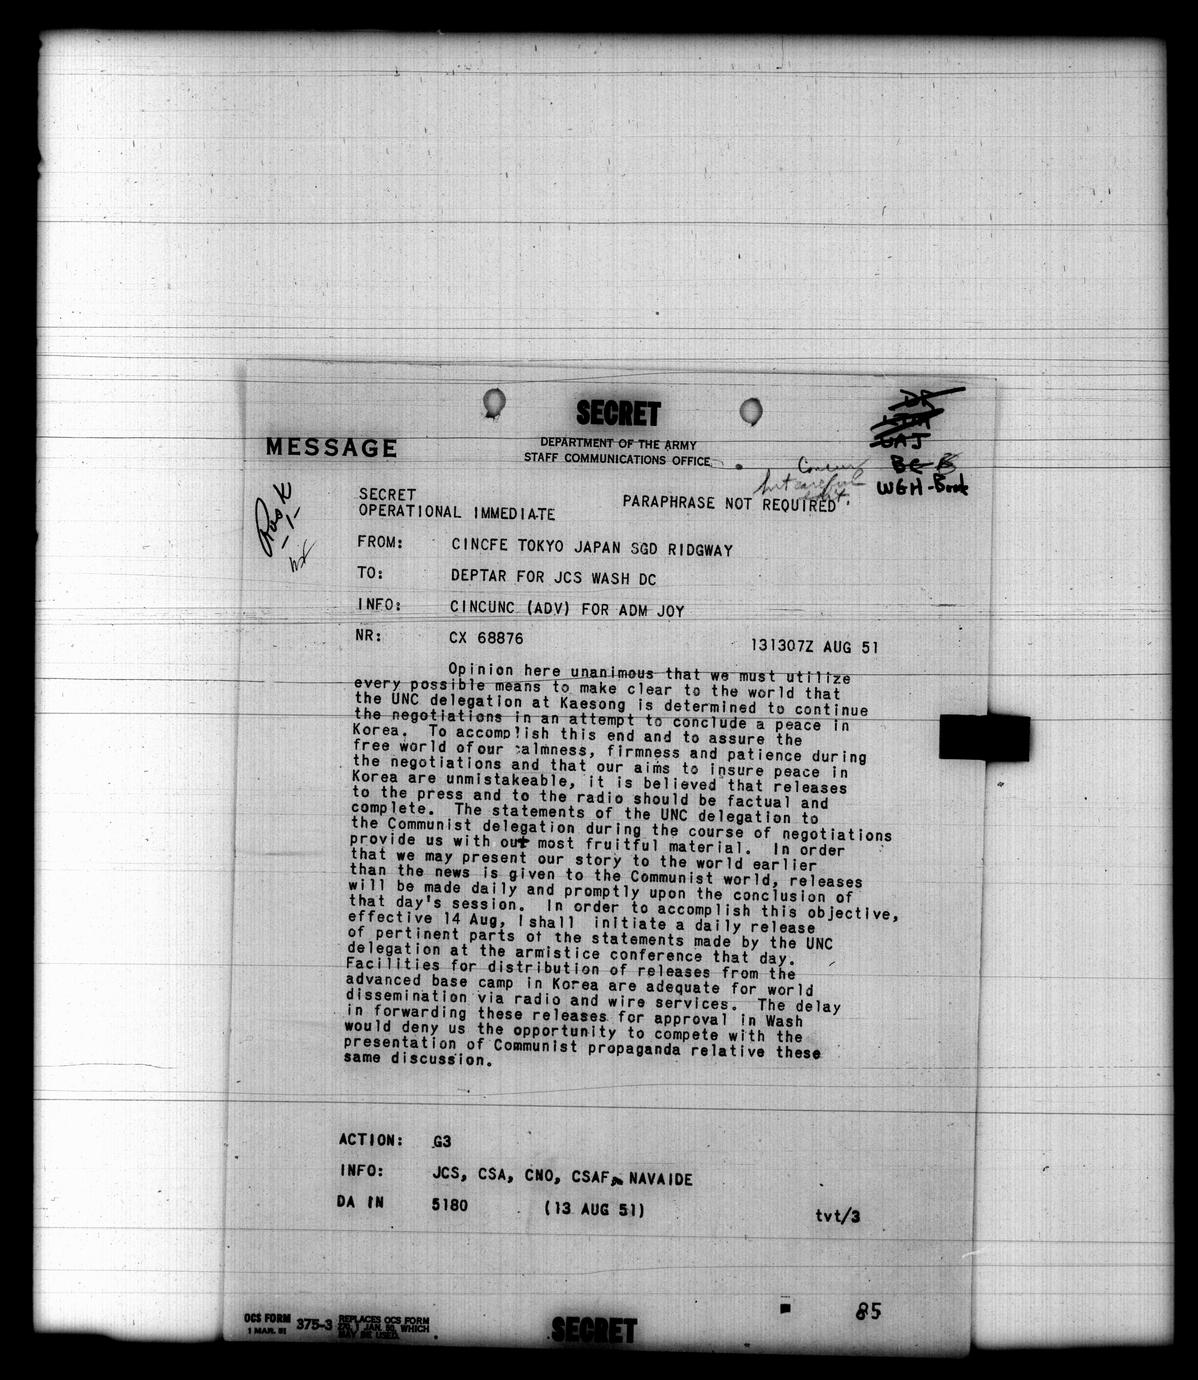 SECRET
MESSAGE
DEPARTMENT OF THE ARMY
STAFF COMMUNICATIONS OFFICE
BC
WGH - Book
Concur
SECRET
PARAPHRASE NOT REQUIRED
OPERATIONAL IMMEDIATE
FROM: CINCFE TOKYO JAPAN SGD RIDGWAY
TO: DEPTAR FOR JCS WASH DC
INFO: CINCUNC (ADV) FOR ADM JOY
NR: CX 68876 131307Z AUG 51
Opinion here unanimous that we must utilize
every possible means to make clear to the world that
the UNC delegation at Kaesong is determined to continue
the negotiations in an attempt to conclude a peace in
Korea. To accomplish this end and to assure the
free world ofour calmness, firmness and patience during
the negotiations and that our aims to insure peace in
Korea are unmistakeable, it is believed that releases
to the press and to the radio should be factual and
complete. The statements of the UNC delegation to
the Communist delegation during the course of negotiations
provide us with out most fruitful material. In order
that we may present our story to the world earlier
than the news is given to the Communist world, releases
will be made daily and promptly upon the conclusion of
that day's session. In order to accomplish this objective,
effective 14 Aug, I shall initiate a daily release
of pertinent parts of the statements made by the UNC
delegation at the armistice conference that day.
Facilities for distribution of releases from the
advanced base camp in Korea are adequate for world
dissemination via radio and wire services. The delay
in forwarding these releases for approval in Wash
would deny us the opportunity to compete with the
presentation of Communist propaganda relative these
same discussion.
ACTION: G3
INFO: JCS, CSA, CNO, CSAF, NAVAIDE
DA IN 5180 (13 AUG 51) tvt/3
85
OCS FORM 375-3 REPLACES OCS FORM
1 MAR. 51 375, 1 JAN. 50, WHICH
MAY BE USED.
SECRET